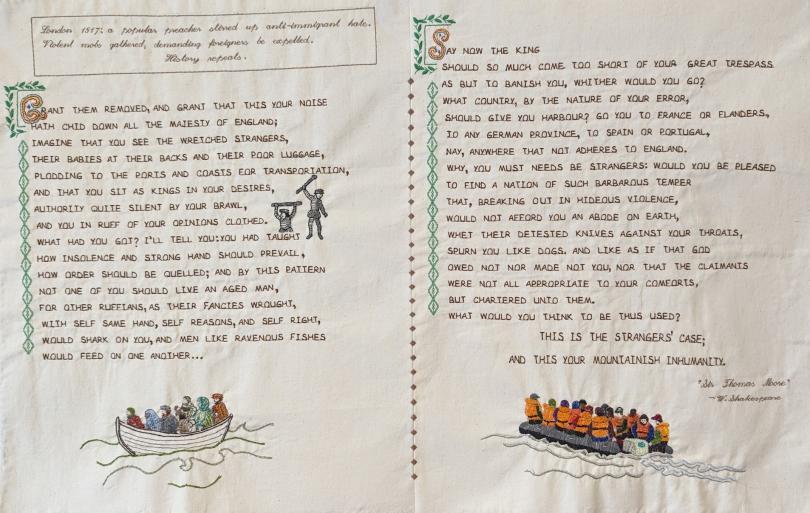 London 1517: a popular preacher stirred up anti-immigrant hate.
Violent mobs gathered, demanding foreigners be expelled.
History repeats.
GRANT THEM REMOVED, AND GRANT THAT THIS YOUR NOISE
HATH CHID DOWN ALL THE MAJESTY OF ENGLAND;
IMAGINE THAT YOU SEE THE WRETCHED STRANGERS,
THEIR BABIES AT THEIR BACKS AND THEIR POOR LUGGAGE,
PLODDING TO THE PORTS AND COASTS FOR TRANSPORTATION,
AND THAT YOU SIT AS KINGS IN YOUR DESIRES,
AUTHORITY QUITE SILENT BY YOUR BRAWL,
AND YOU IN RUFF OF YOUR OPINIONS CLOTHED.
WHAT HAD YOU GOT? I'LL TELL YOU: YOU HAD TAUGHT
HOW INSOLENCE AND STRONG HAND SHOULD PREVAIL,
HOW ORDER SHOULD BE QUELLED; AND BY THIS PATTERN
NOT ONE OF YOU SHOULD LIVE AN AGED MAN,
FOR OTHER RUFFIANS, AS THEIR FANCIES WROUGHT,
WITH SELF SAME HAND, SELF REASONS, AND SELF RIGHT,
WOULD SHARK ON YOU, AND MEN LIKE RAVENOUS FISHES
WOULD FEED ON ONE ANOTHER...
SAY NOW THE KING
SHOULD SO MUCH COME TOO SHORT OF YOUR GREAT TRESPASS
AS BUT TO BANISH YOU, WHITHER WOULD YOU GO?
WHAT COUNTRY, BY THE NATURE OF YOUR ERROR,
SHOULD GIVE YOU HARBOUR? GO YOU TO FRANCE OR FLANDERS,
TO ANY GERMAN PROVINCE, TO SPAIN OR PORTUGAL,
NAY, ANYWHERE THAT NOT ADHERES TO ENGLAND.
WHY, YOU MUST NEEDS BE STRANGERS: WOULD YOU BE PLEASED
TO FIND A NATION OF SUCH BARBAROUS TEMPER
THAT, BREAKING OUT IN HIDEOUS VIOLENCE,
WOULD NOT AFFORD YOU AN ABODE ON EARTH,
WHET THEIR DETESTED KNIVES AGAINST YOUR THROATS,
SPURN YOU LIKE DOGS. AND LIKE AS IF THAT GOD
OWED NOT NOR MADE NOT YOU, NOR THAT THE CLAIMANTS
WERE NOT ALL APPROPRIATE TO YOUR COMFORTS,
BUT CHARTERED UNTO THEM.
WHAT WOULD YOU THINK TO BE THUS USED?
THIS IS THE STRANGERS' CASE;
AND THIS YOUR MOUNTAINISH INHUMANITY.
"Sir Thomas Moore"
~W. Shakespeare